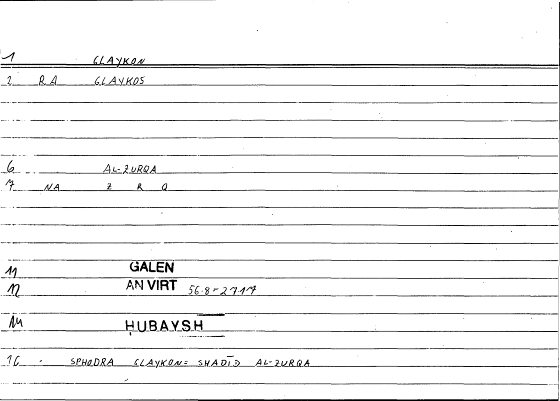 1 GLAYKON
2 RA GLAYKOS
6 AL-ZURQA
7 NA Z R Q
11 GALEN
12 AN VIRT 56.8-27.17
14 ḤUBAYSH
16 - SPHODRA GLAYKON= SHADĪD AL-ZURQA